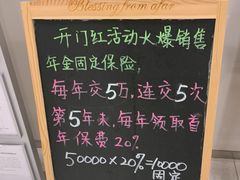 Blessing from afar
开门红活动火爆销售
年金固定保险
每年交5万，连交5次
第5年末，每年领取首
年保费20%
50000×20%=10000
固定